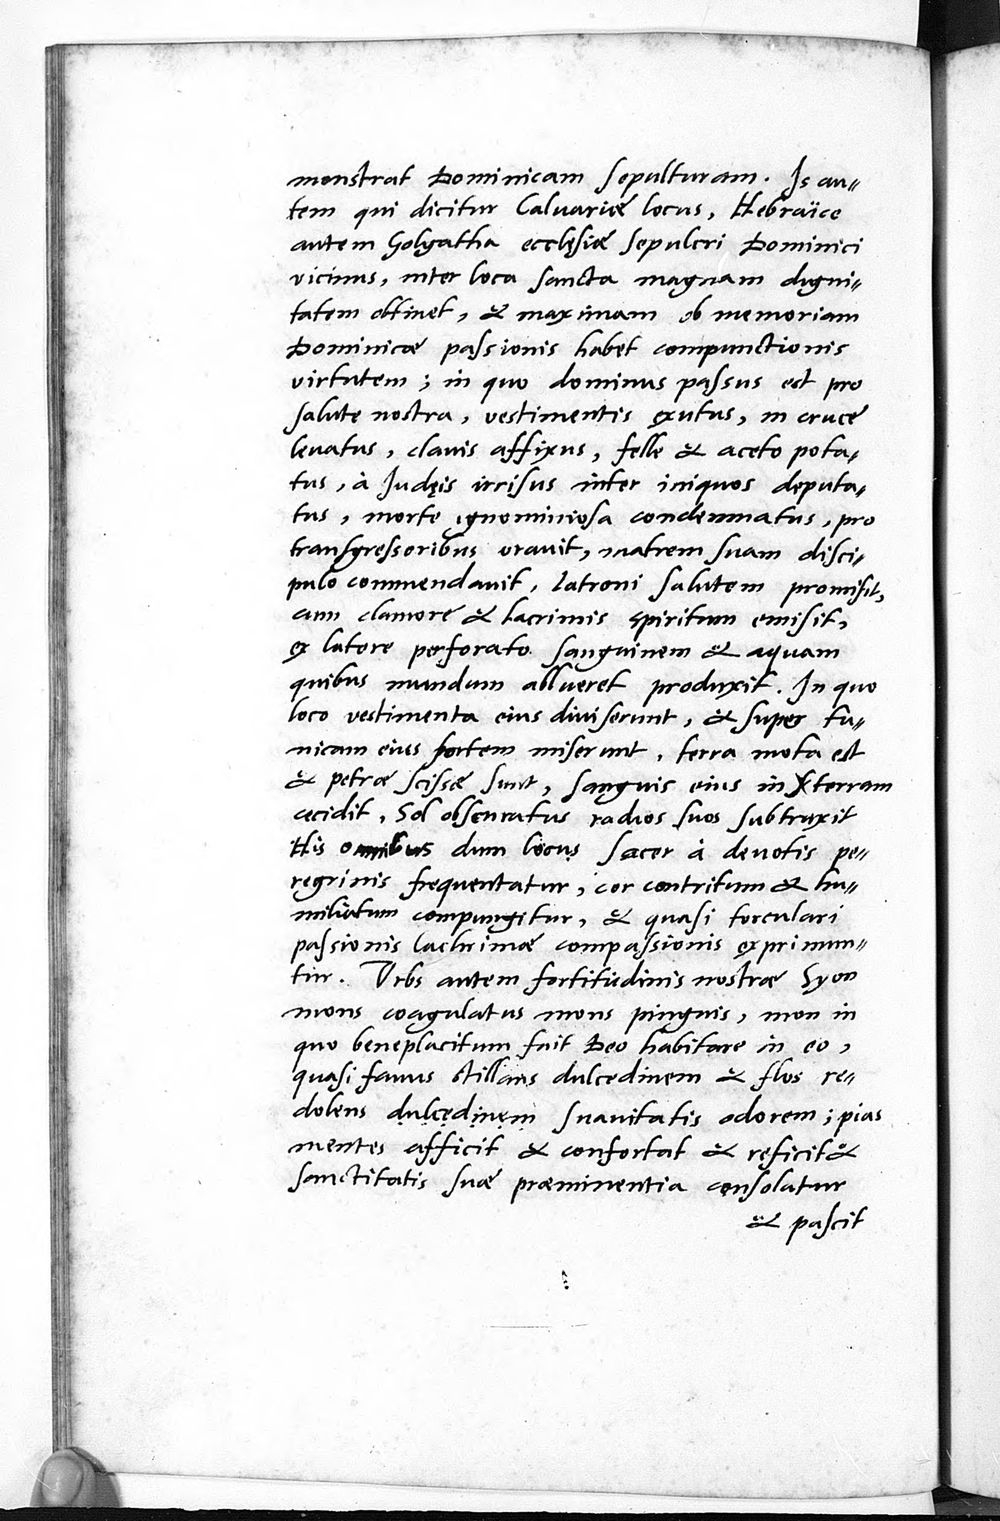 monstrat Dominicam sepulturam. Is au„
tem qui dicitur Caluariæ locus, Hebraïce
autem Golgatha ecclęsiæ sepulcri Dominici
vicinus, inter loca sancta magnam digni„
tatem obtinet, & maximam ob memoriam
Dominicæ passionis habet compunctionis
virtutem; in quo dominus passus est pro
salute nostra, vestimentis exutus, in cruce
leuatus, clauis affixus, felle & aceto pota„
tus, à Judęis irrisus inter iniquos deputa„
tus, morte ignominiosa condemnatus, pro
transgressoribus orauit, matrem suam disci„
pulo commendauit, latroni salutem promisit,
cum clamore & lacrimis spiritum emisit,
ex latere perforato sanguinem & aquam
quibus mundum ablueret produxit. In quo
loco vestimenta eius diuiserunt, & super tu„
nicam eius sortem miserunt, terra mota est
& petræ scissæ sunt, sanguis eius in terram
cecidit, Sol obscuratus radios suos subtraxit
His omnibus dum locus sacer à deuotis pe„
regrinis frequentatur, cor contritum & hu„
miliatum compungitur, & quasi torculari
passionis lachrimæ compassionis exprimun„
tur. Vrbs autem fortitudinis nostræ Syon
mons coagulatus mons pinguis, mon in
quo beneplacitum fuit Deo habitare in eo,
quasi fauus stillans dulcedinem & flos re„
dolens dulcedinem suauitatis odorem; pias
mentes afficit & confortat & reficit &
sanctitatis suæ præminentia consolatur
& pascit